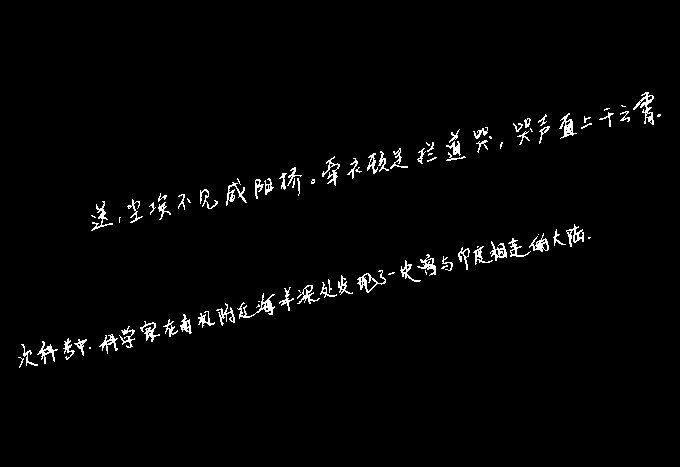 送,尘埃不见咸阳桥。牵衣顿足拦道哭,哭声直上干云霄。
次科考中.科学家在南极附近海洋深处发现了一块曾与印度相连的大陆.